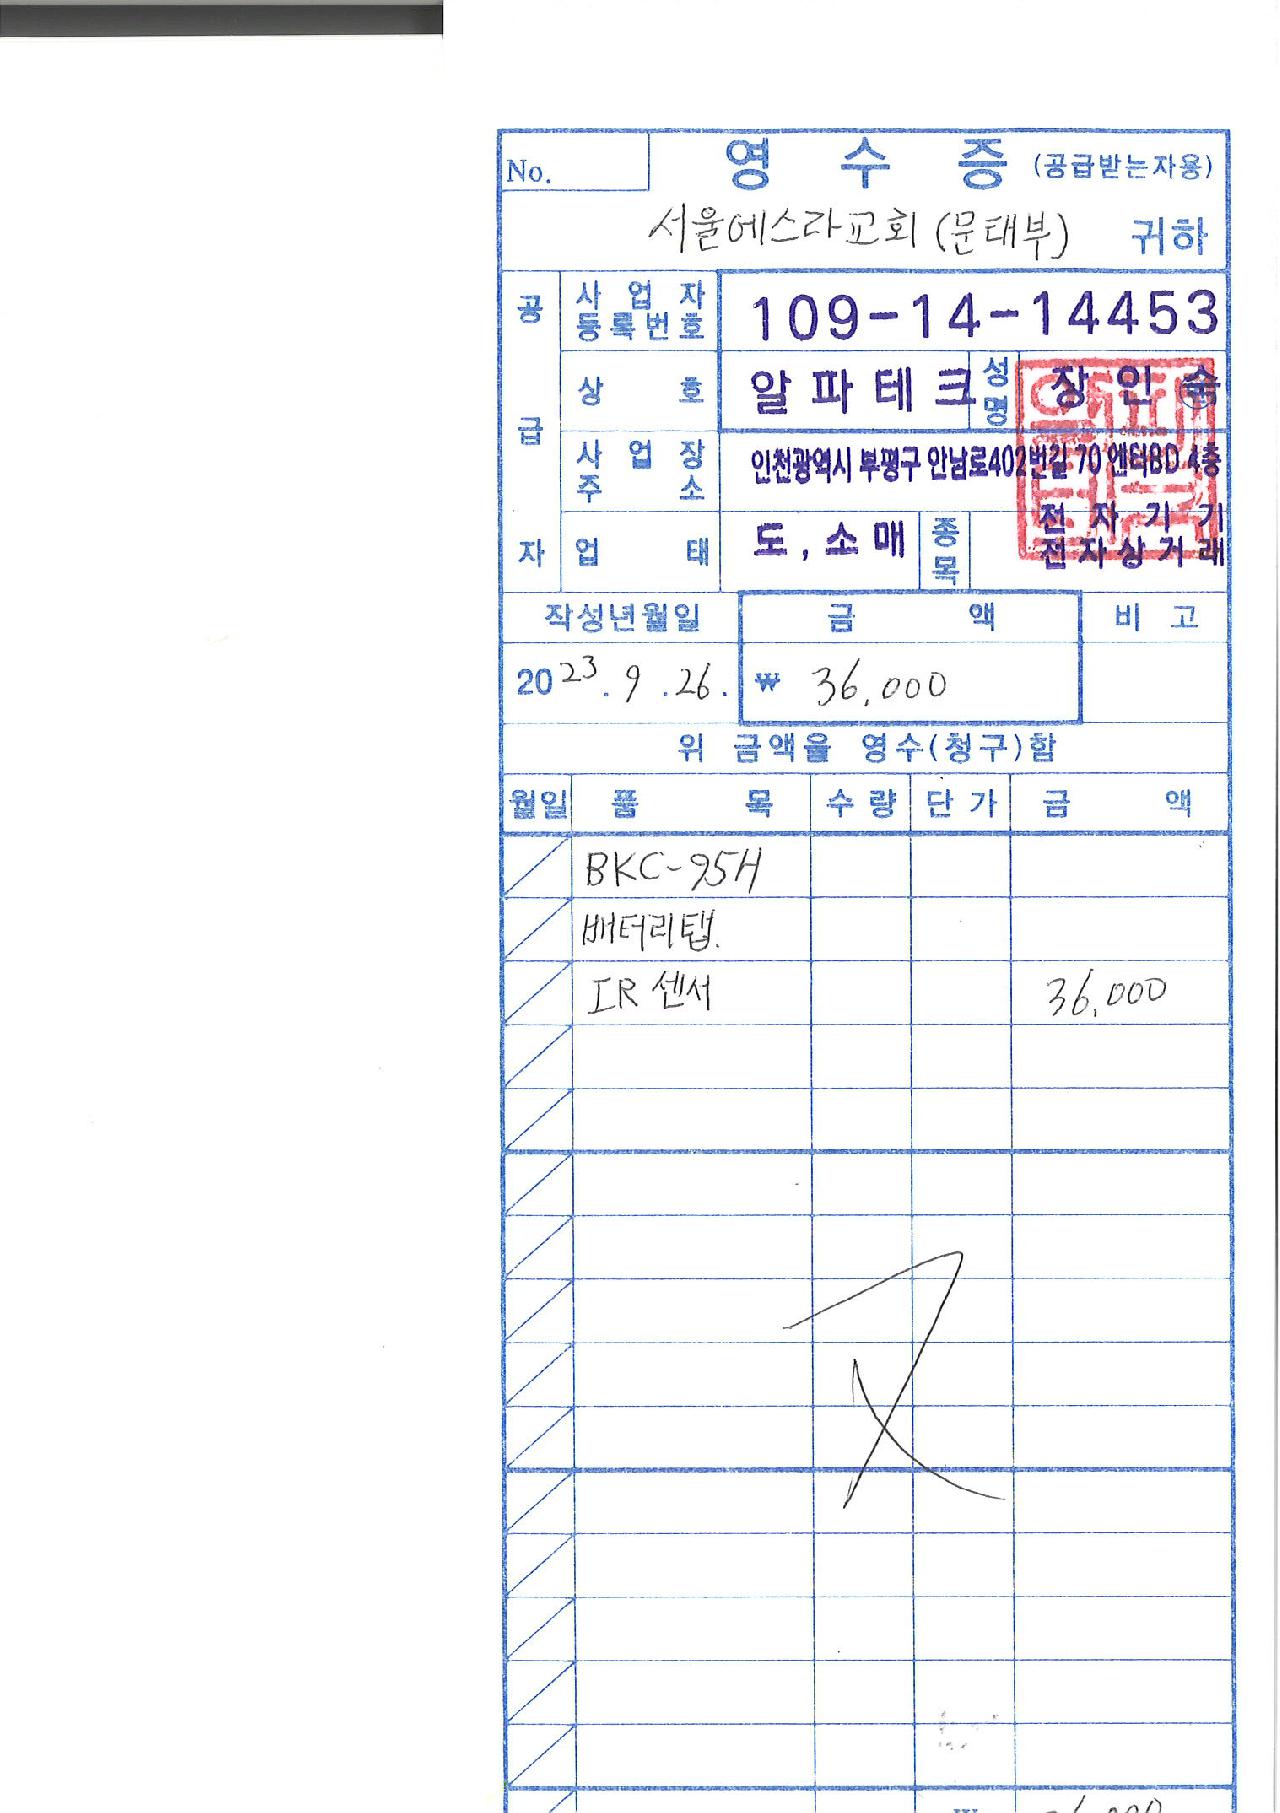 No.
영 수 증 (공급받는자용)
서울에스라교회 (문태부) 귀하
공 급 자
사 업 자 등록번호 109-14-14453
상 호 알파테크 성명 장 인
사 업 장 주 소 인천광역시 부평구 안남로402번길 70 엔타BD 4층
업 태 도, 소매 종목 전 자 기 기
전자상거래
작성년월일 금 액 비 고
2023. 9. 26. ₩ 36,000
위 금액을 영수(청구)함
월일 품 목 수 량 단 가 금 액
BKC-95H
배터리탭.
IR 센서 36,000